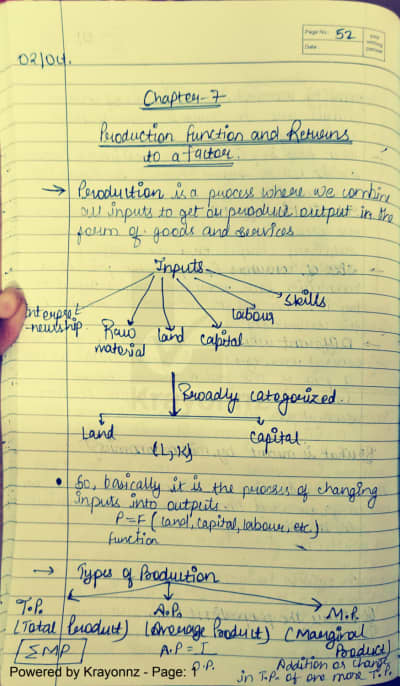 Page No.: 52
Date
02/04.
Chapter-7
Production function and Returns
to a factor.
→ Production is a process where we combine
all inputs to get or product output in the
form of goods and services
Inputs
Raw material
land
capital
labour
skills
Broadly categorized.
Land
Capital
(L, K)
• So, basically it is the process of changing
inputs into outputs.
P=F (land, capital, labour, etc.)
function
→ Types of Production
T.P. A.P. M.P.
(Total Product) (Average Product) (Marginal
Product)
ΣMP A.P =
Addition or change
in T.P. of one more
Powered by Krayonnz - Page: 1
Krayonnz